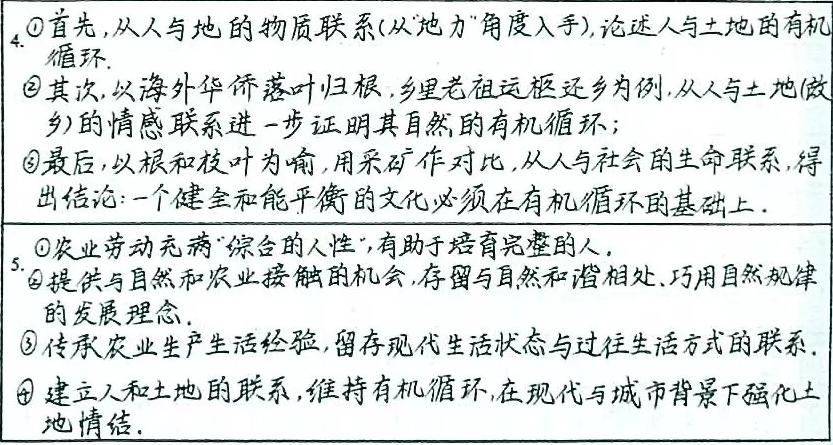 4.①首先,从人与地的物质联系(从"地力"角度入手),论述人与土地的有机
循环.
②其次,以海外华侨落叶归根,乡里老祖运柩还乡为例,从人与土地(故
乡)的情感联系进一步证明其自然的有机循环;
③最后,以根和枝叶为喻,用采矿作对比,从人与社会的生命联系,得
出结论:一个健全和能平衡的文化必须在有机循环的基础上.
5.①农业劳动充满"综合的人性",有助于培育完整的人.
②提供与自然和农业接触的机会,存留与自然和谐相处、巧用自然规律
的发展理念.
③传承农业生产生活经验,留存现代生活状态与过往生活方式的联系.
④建立人和土地的联系,维持有机循环,在现代与城市背景下强化土
地情结.